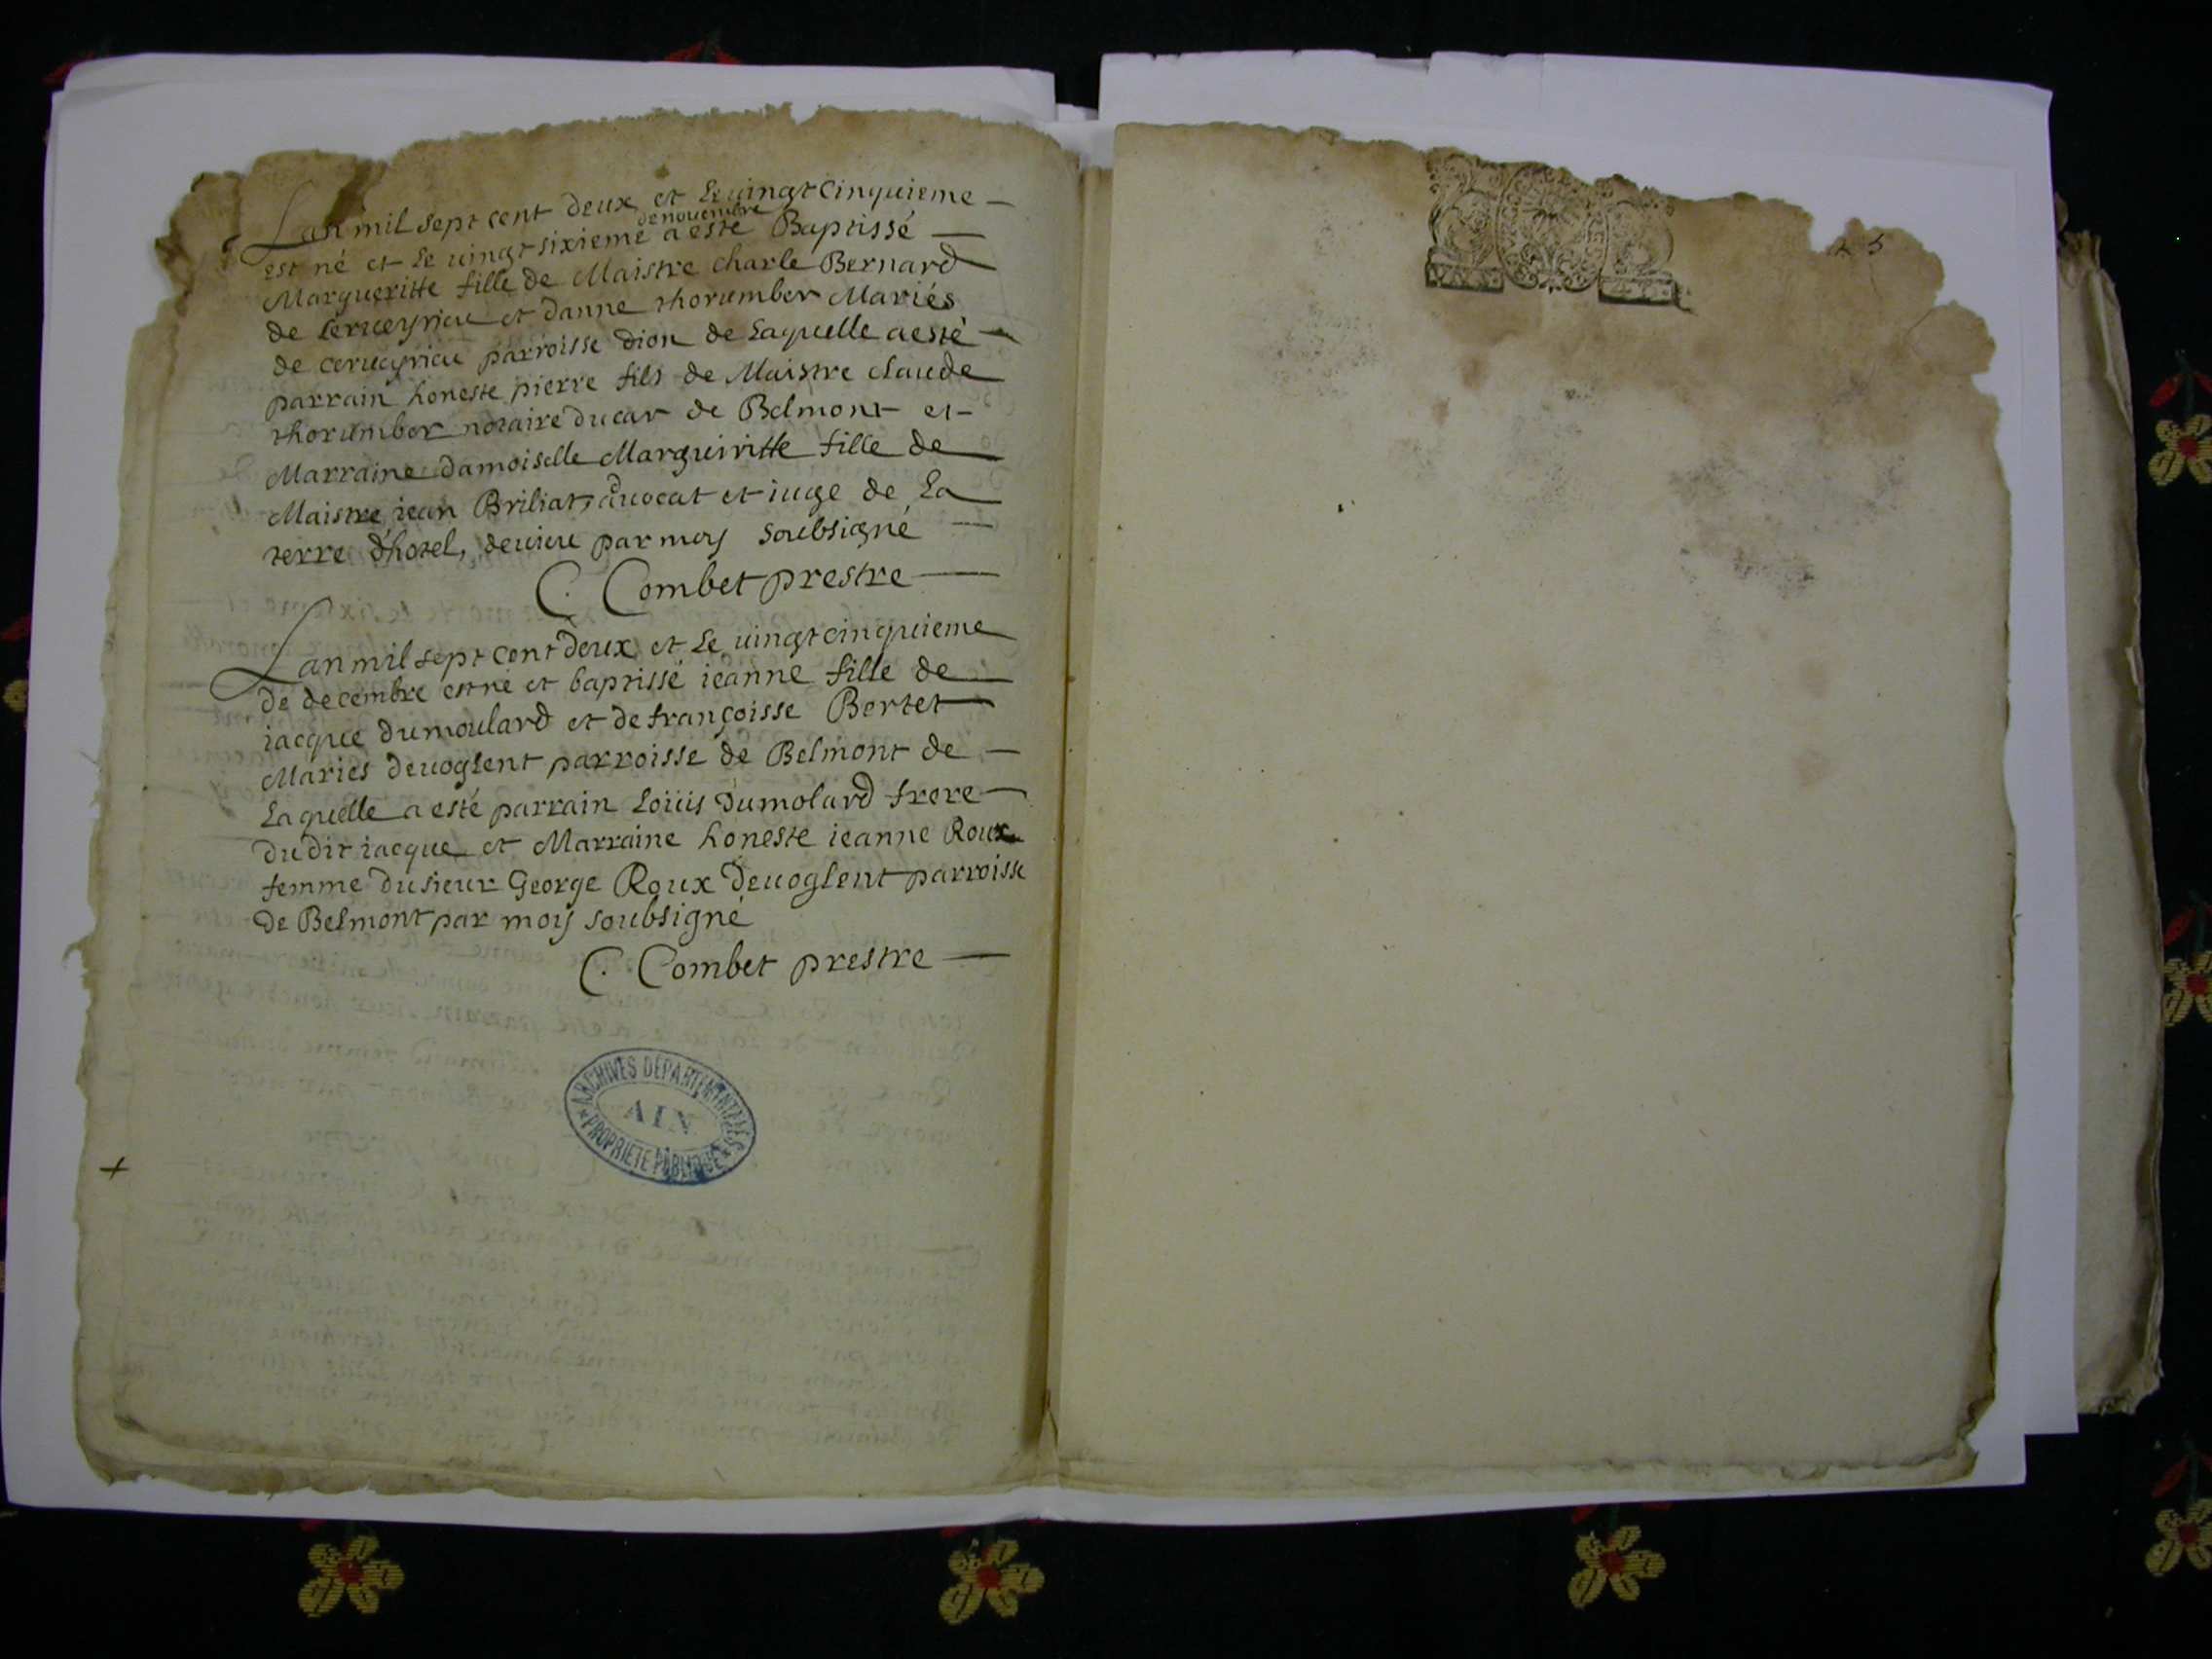 Lan mil sept cent deux et le uingt cinquieme
de nouembre
est né et le uingt sixieme a esté Baptissé
Margueritte fille de Maistre charle Bernard
de Cerueyrieu et danne thorumber Mariés
de cerueyrieu parroisse dion de Laquelle a esté
parrain honeste pierre fils de Maistre claude
thorumber notaire ducal de Belmont et
Marraine damoiselle Margueiritte fille de
Maistre iean Briliat, auocat et iuge de La
terre d'hotel, deuieu par moy soubsigné
C. Combet prestre
Lan mil sept cent deux et Le uingt cinquieme
de decembre est né et baptissé ieanne fille de
iacque dumoulard et de françoisse Bertet
Maries deuoglent parroisse de Belmont de
Laquelle a esté parrain Loüis dumolard frere
du dit iacque et Marraine honeste ieanne Roux
femme du sieur George Roux deuoglent parroisse
de Belmont par moy soubsigné
C. Combet prestre
ARCHIVES DÉPARTEMENTALES
AIN
PROPRIÉTÉ PUBLIQUE